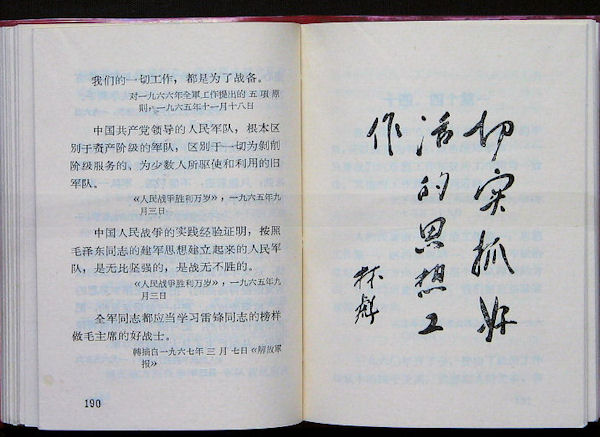 我们的一切工作，都是为了战备。
对一九六六年全軍工作提出的 五 項 原
則，一九六五年十一月十八日
中国共产党领导的人民军队，根本区
别于资产阶级的军队，区别于一切为剥削
阶级服务的、为少数人所驱使和利用的旧
军队。
《人民战爭胜利万岁》，一九六五年九
月三日
中国人民战争的实践经验证明，按照
毛泽东同志的建军思想建立起来的人民军
队，是无比坚强的，是战无不胜的。
《人民战爭胜利万岁》，一九六五年九
月三日
全军同志都应当学习雷锋同志的榜样
做毛主席的好战士。
轉摘自一九六七年 三 月 七日《解放軍
报》
190
切实抓好
活的思想工
作
林彪